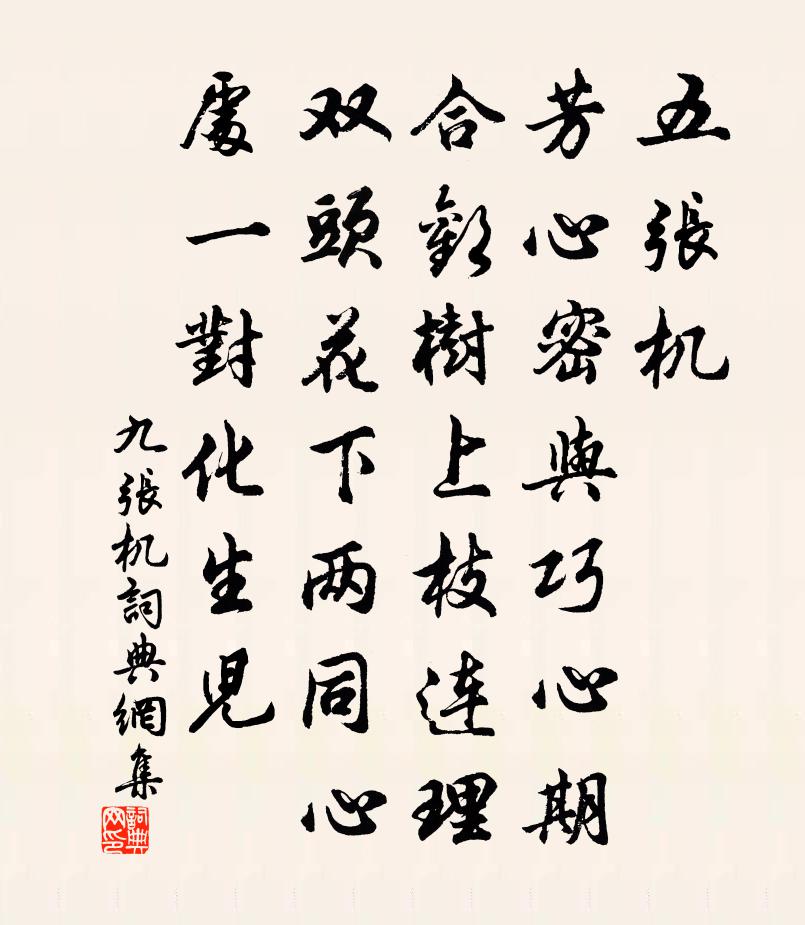 五張机
芳心密與巧心期
合歡樹上枝連理
双頭花下两同心
處一對化生児
九張机詞典網集
詞典网印